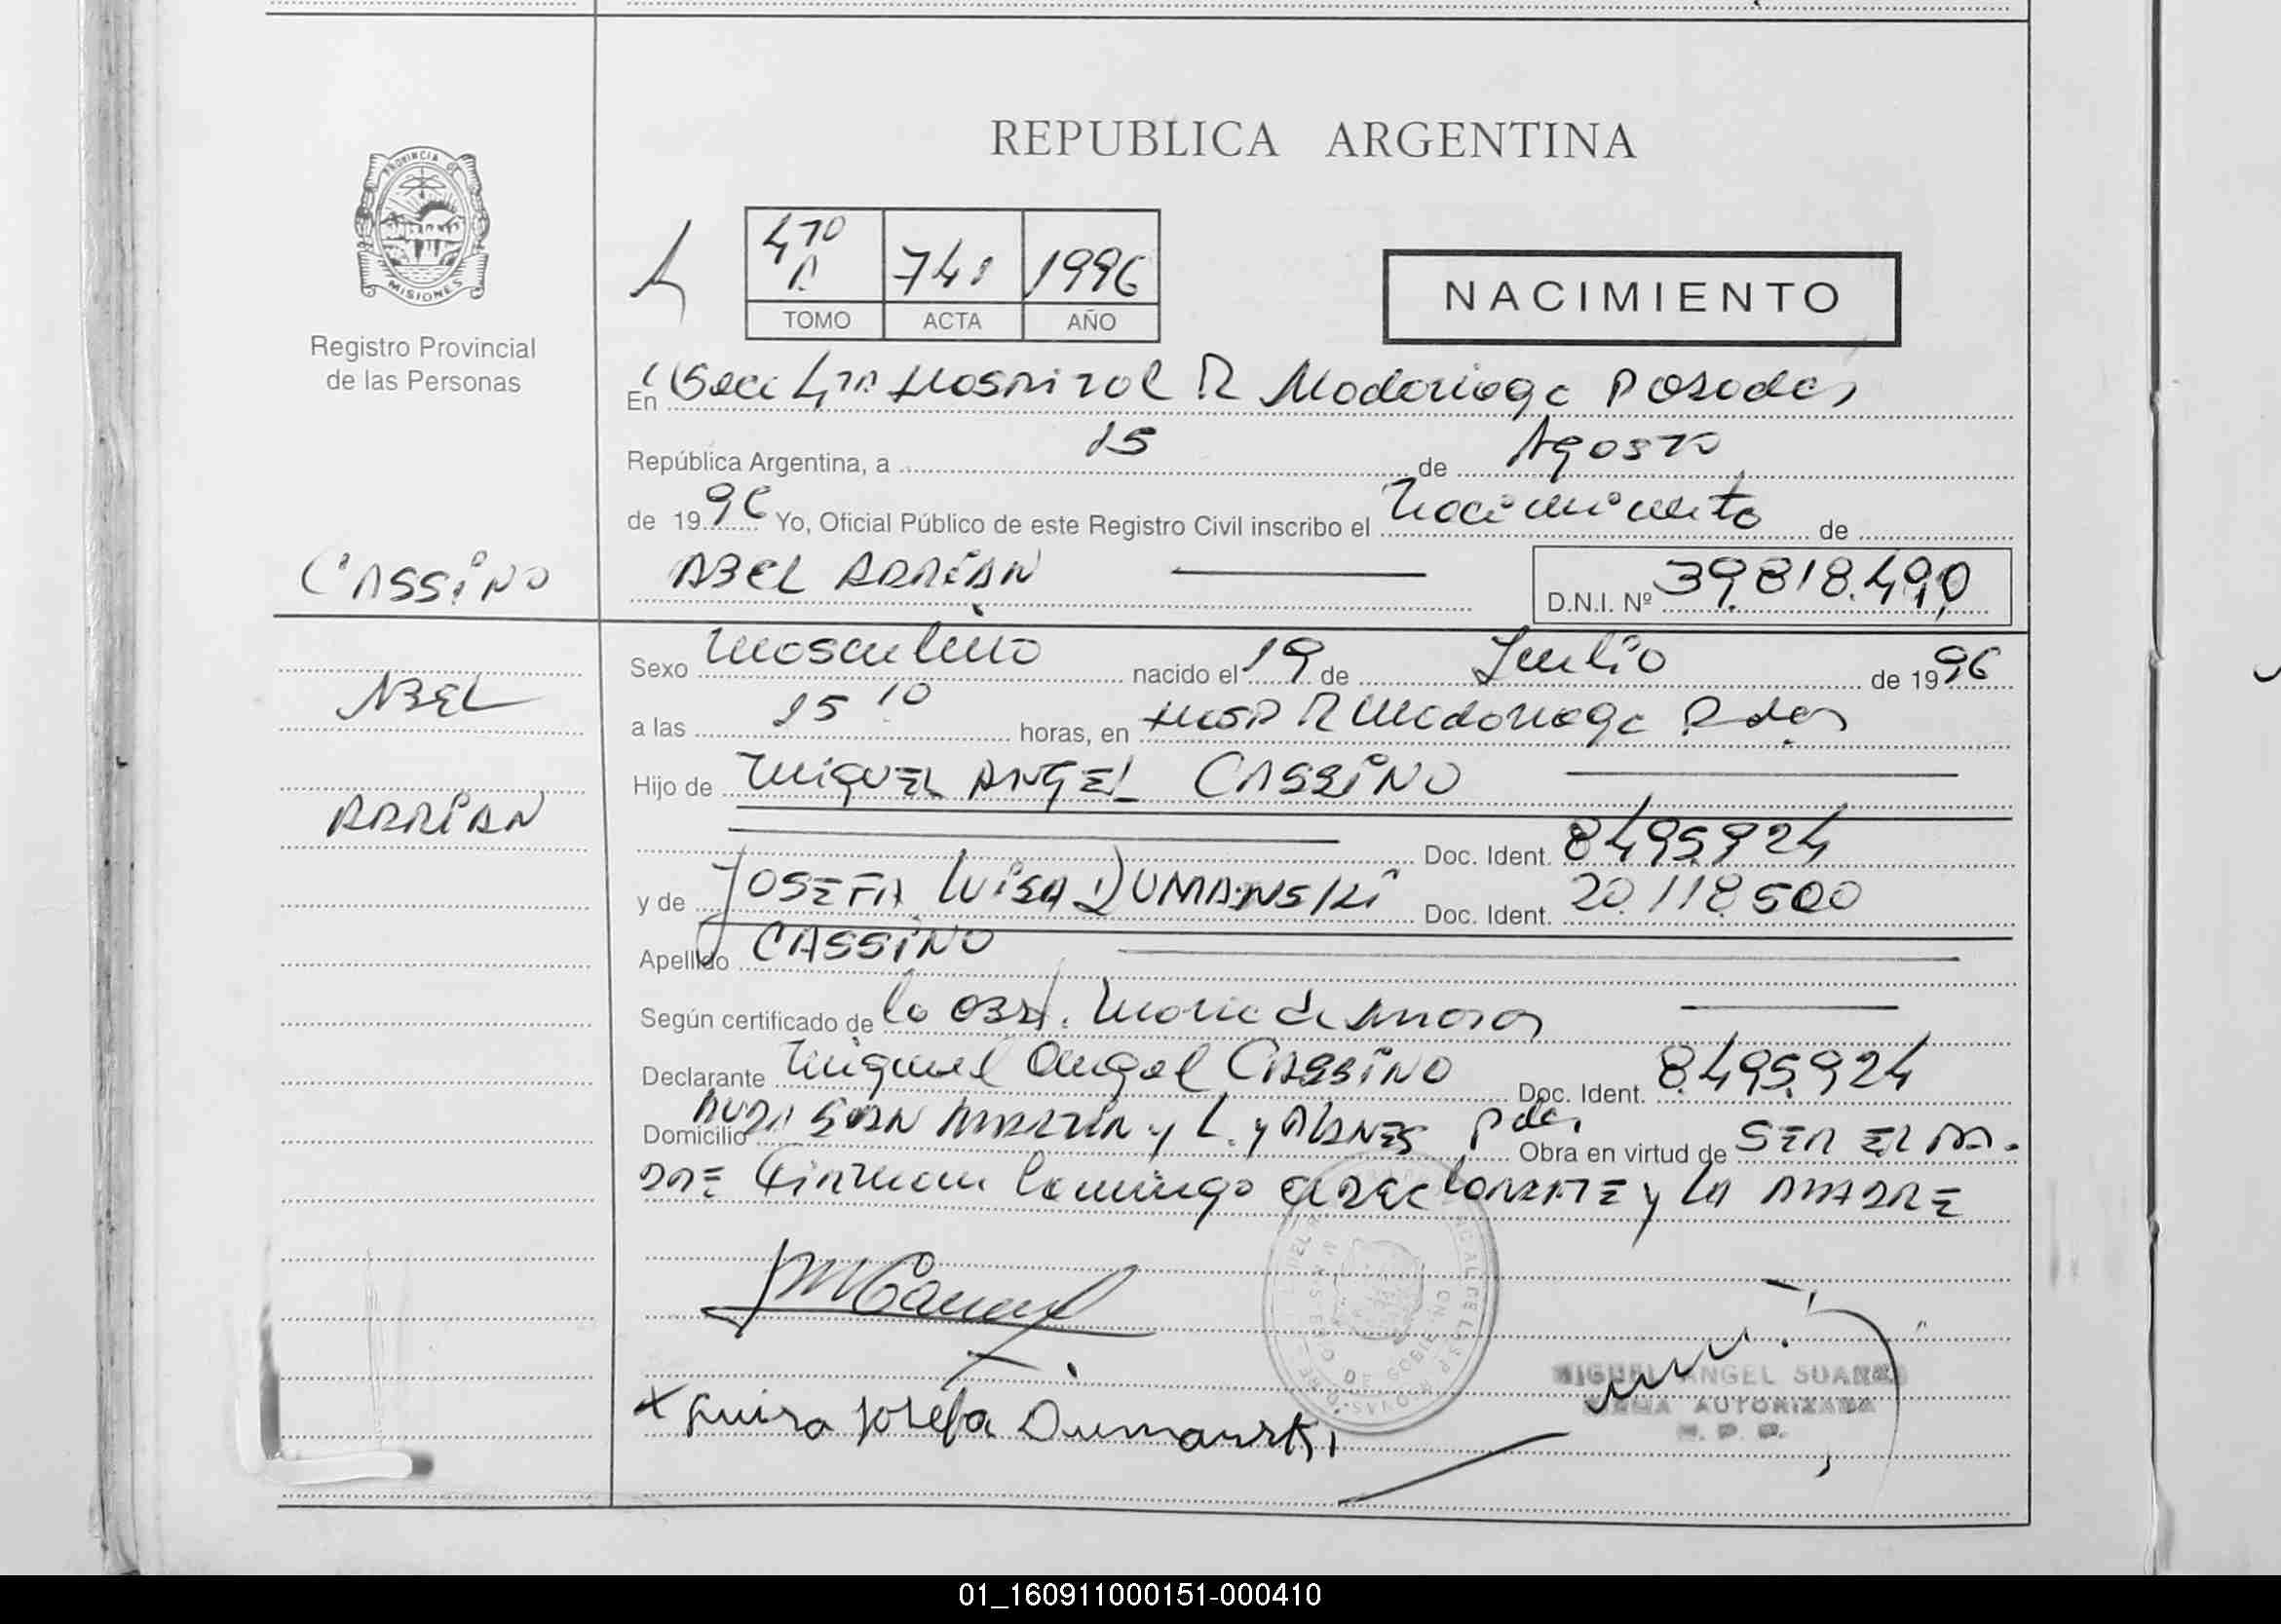 REPUBLICA ARGENTINA
PROVINCIA DE
MISIONES
Registro Provincial
de las Personas
4to 741 1996
TOMO ACTA AÑO
NACIMIENTO
En Secc 4ta Hospital R Madariaga Posadas
República Argentina, a 15 de Agosto
de 1996 Yo, Oficial Público de este Registro Civil inscribo el Nacimiento de
CASSINO
ABEL ADRIAN
D.N.I. Nº 39.818.490
Sexo Masculino nacido el 19 de Julio de 1996
ABEL
a las 15 10 horas, en Hosp R Madariaga Pdas
Hijo de MIGUEL ANGEL CASSINO
ADRIAN
Doc. Ident. 8495924
y de JOSEFA LUISA DUMANSKI Doc. Ident. 20.118.500
Apellido CASSINO
Según certificado de la Obst. Maria de
Declarante Miguel Angel CASSINO Doc. Ident. 8.495.924
Domicilio AVDA SAN MARTIN y L. y PLANES Pdas Obra en virtud de SER EL PA-
DRE Firman conmigo el DECLARANTE y LA MADRE
x Luisa Josefa Dumanski
MIGUEL ANGEL SUAREZ
FIRMA AUTORIZADA
R. P. P.
01_160911000151-000410